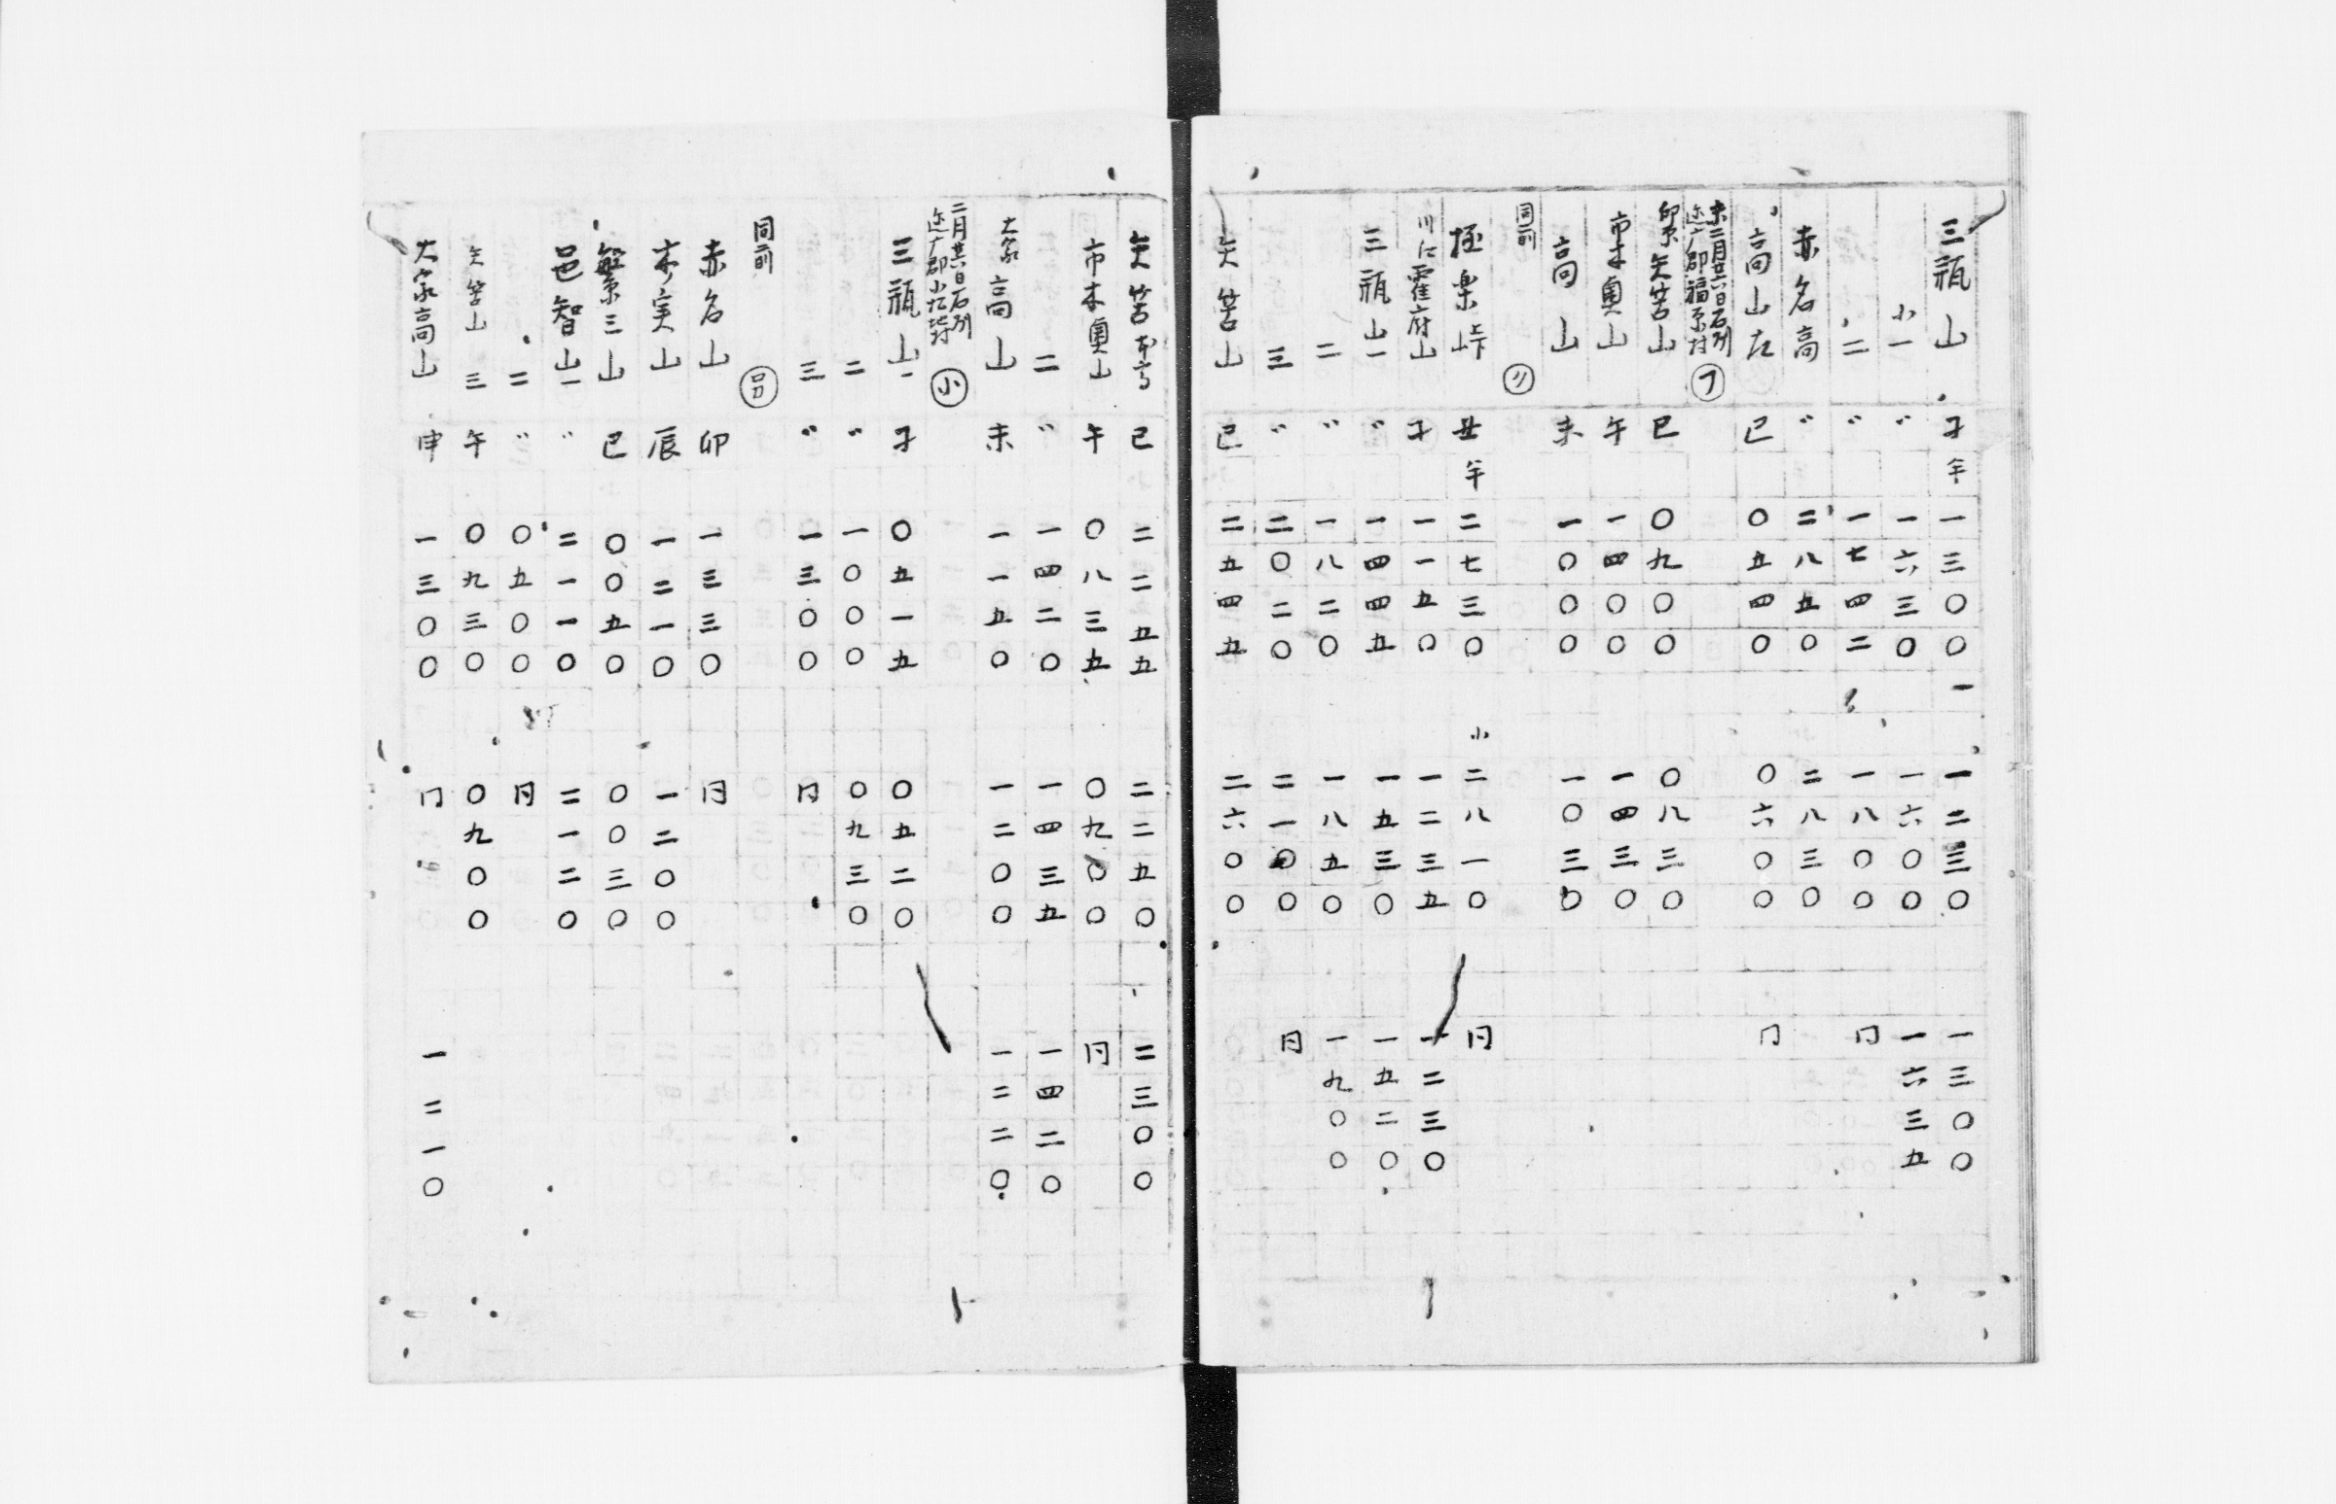 三瓶山 子 年 一三〇〇 一 一二三〇 一三〇〇
小一 〃 一六三〇 一六〇〇 一六三五
二 〃 一七四二 一八〇〇 同
赤名高 〃 二八五〇 二八三〇
高山左 巳 〇五四〇 六〇〇 同
未二月廿六日石州
迩广郡福原村 フ
矢筈山 巳 〇九〇〇 〇八三〇
市木奧山 午 一四〇〇 一四三〇
高山 未 一〇〇〇 一〇三〇
同所 リ
極楽峠 丑 年 二七三〇 小 二八一〇 同
川仁霍府山 子 一一五〇 一二三五 一二三〇
三瓶山一 〃 一四四五 一五三〇 一五二〇
二 〃 一八二〇 一八五〇 一九〇〇
三 〃 二〇二〇 二一〇〇 同
矢筈山 巳 二五四五 二六〇〇
矢筈 巳 二二五五 二二五〇 二三〇〇
市木奧山 午 〇八三五 〇九〇〇 同
二 〃 一四二〇 一四三五 一四二〇
大家高山 未 一一五〇 一二〇〇 一二二〇
二月廿六日石州
迩广郡 小
三瓶山一 子 〇五一五 〇五二〇
二 〃 一〇〇〇 〇九三〇
三 〃 一三〇〇 同
同所
赤名山 卯 一三三〇 同
木実山 辰 一二一〇 一二〇〇
繁三山 巳 〇〇五〇 〇〇三〇
邑智山一 〃 二一一〇 二一二〇
二 〃 〇五〇〇 同
矢筈山三 午 〇九三〇 〇九〇〇
大家高山 申 一三〇〇 同 一二一〇